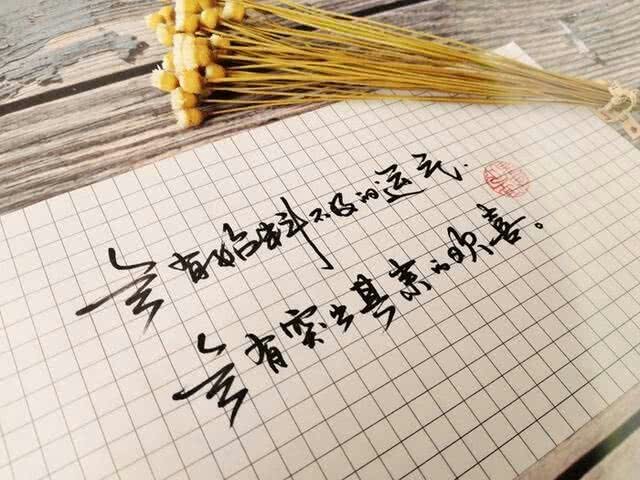 会有始料不及的运气.
会有突出其来的欢喜。